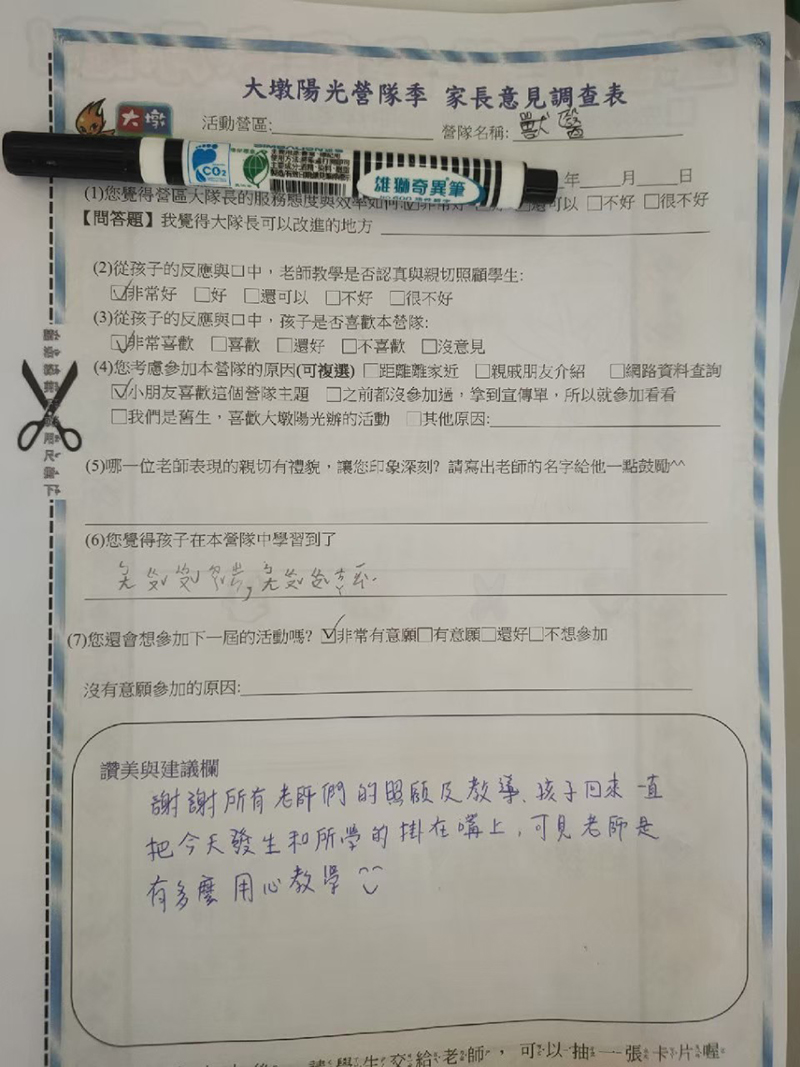 大墩陽光營隊季 家長意見調查表
大墩
活動營區: 營隊名稱: 獸醫
CO₂
雄獅奇異筆
年 月 日
(1)您覺得營區大隊長的服務態度與效率如何 非常好 還可以 □不好 □很不好
【問答題】我覺得大隊長可以改進的地方
(2)從孩子的反應與口中，老師教學是否認真與親切照顧學生:
☑非常好 □好 □還可以 □不好 □很不好
(3)從孩子的反應與口中，孩子是否喜歡本營隊:
☑非常喜歡 □喜歡 □還好 □不喜歡 □沒意見
(4)您考慮參加本營隊的原因(可複選) □距離離家近 □親戚朋友介紹 □網路資料查詢
☑小朋友喜歡這個營隊主題 □之前都沒參加過，拿到宣傳單，所以就參加看看
□我們是舊生，喜歡大墩陽光辦的活動 □其他原因:
(5)哪一位老師表現的親切有禮貌，讓您印象深刻? 請寫出老師的名字給他一點鼓勵^^
(6)您覺得孩子在本營隊中學習到了
(7)您還會想參加下一屆的活動嗎? ☑非常有意願□有意願□還好□不想參加
沒有意願參加的原因:
讚美與建議欄
謝謝所有老師們的照顧及教導、孩子回來一直
把今天發生和所學的掛在嘴上，可見老師是
有多麼用心教學
請學生交給老師，可以抽一張卡片喔